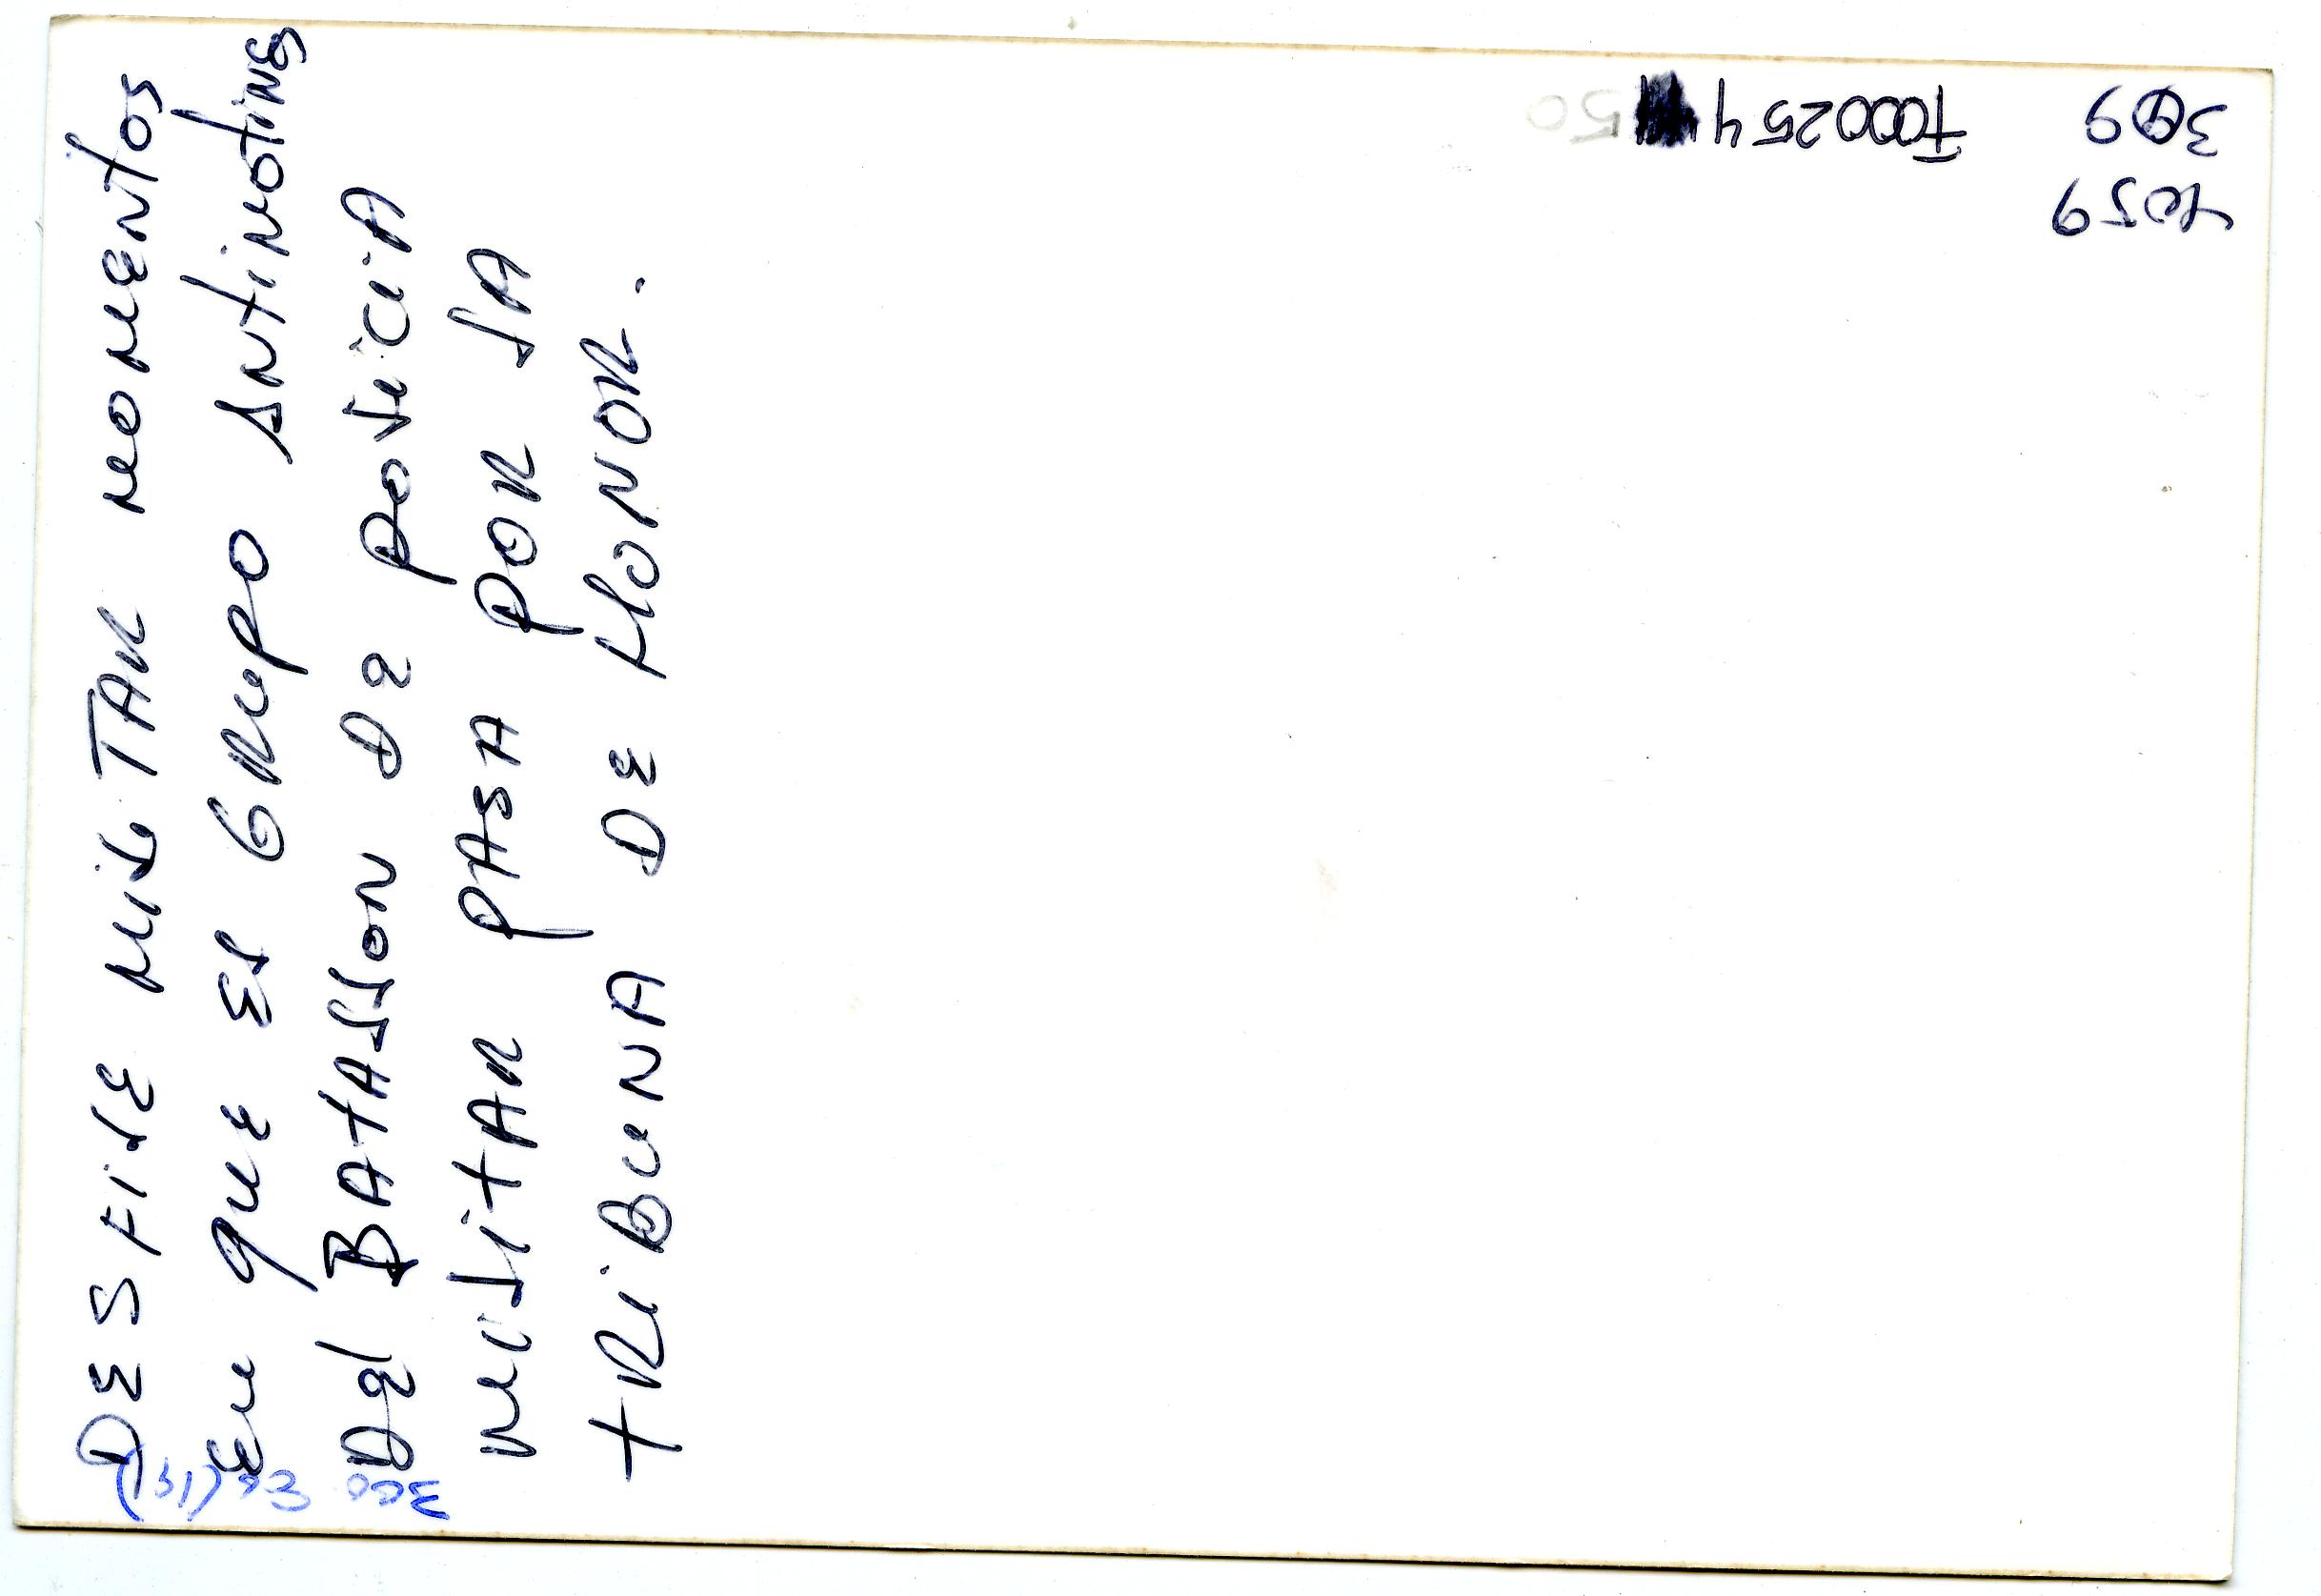 DESFILE MILITAR MOMENTOS
EN QUE EL GRUPO ANTIMOTINES
Del BATALLON De POLICIA
MILITAR PASA POR LA
TRIBUNA DE HONOR.
F000254
50
4059